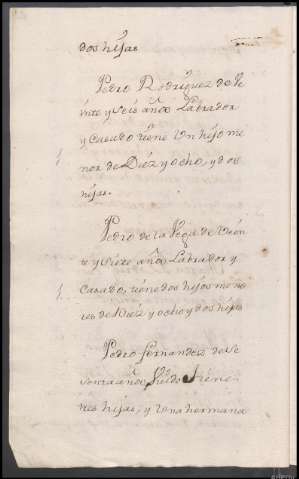 dos hijas
Pedro Rodriguez de Ve
inte y Seis años Labrador
y Casado tiene Un hijo me
nor de Diez y ocho, y dos
hijas.
Pedro de la Vega de Vein
te y Siete años Labrador y
Casado, tiene dos hijos meno
res de Diez y ocho y dos hijas
Pedro fernandez de Se
senta años Viudo tiene
tres hijas, y Una hermana